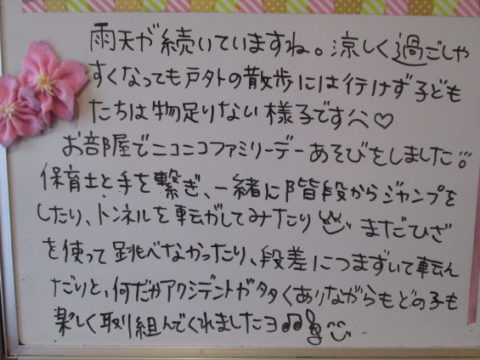 雨天が続いていますね。涼しく過ごしや
すくなっても戸外の散歩には行けず子ども
たちは物足りない様子です^^♡
お部屋でニコニコファミリーデーあそびをしました!!
保育士と手を繋ぎ、一緒に階段からジャンプを
したり、トンネルを転がしてみたり まだひざ
を使って跳べなかったり、段差につまずいて転ん
だりと、何だかアクシデントが多々ありながらもどの子も
楽しく取り組んでくれましたヨ♫♫